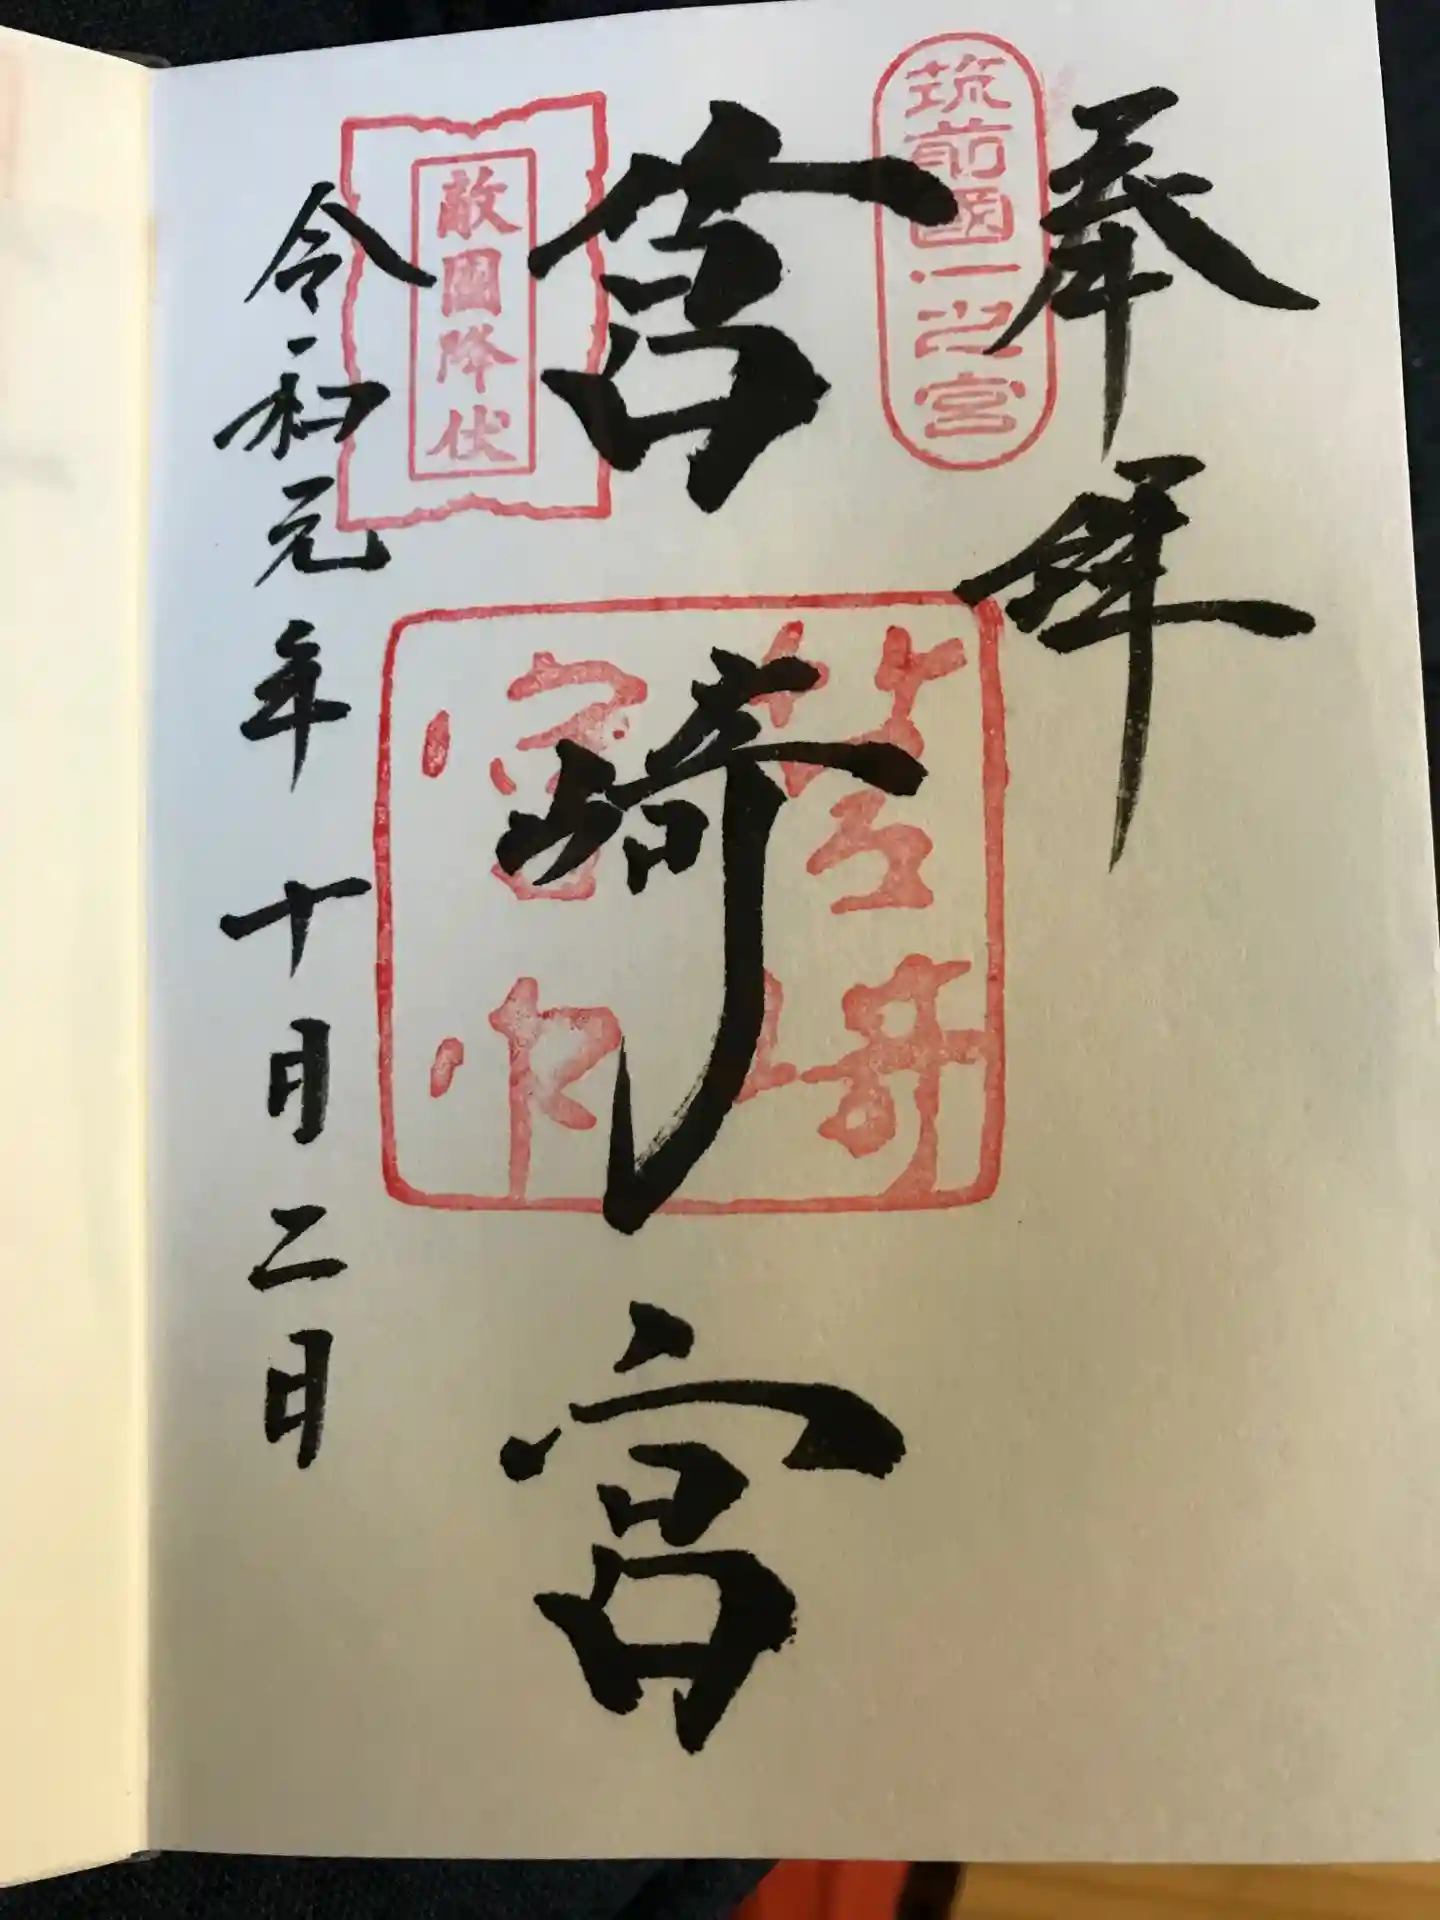 奉拝
筑前國一之宮
筥崎宮
筥崎
宮印
敵國降伏
令和元年十月二日